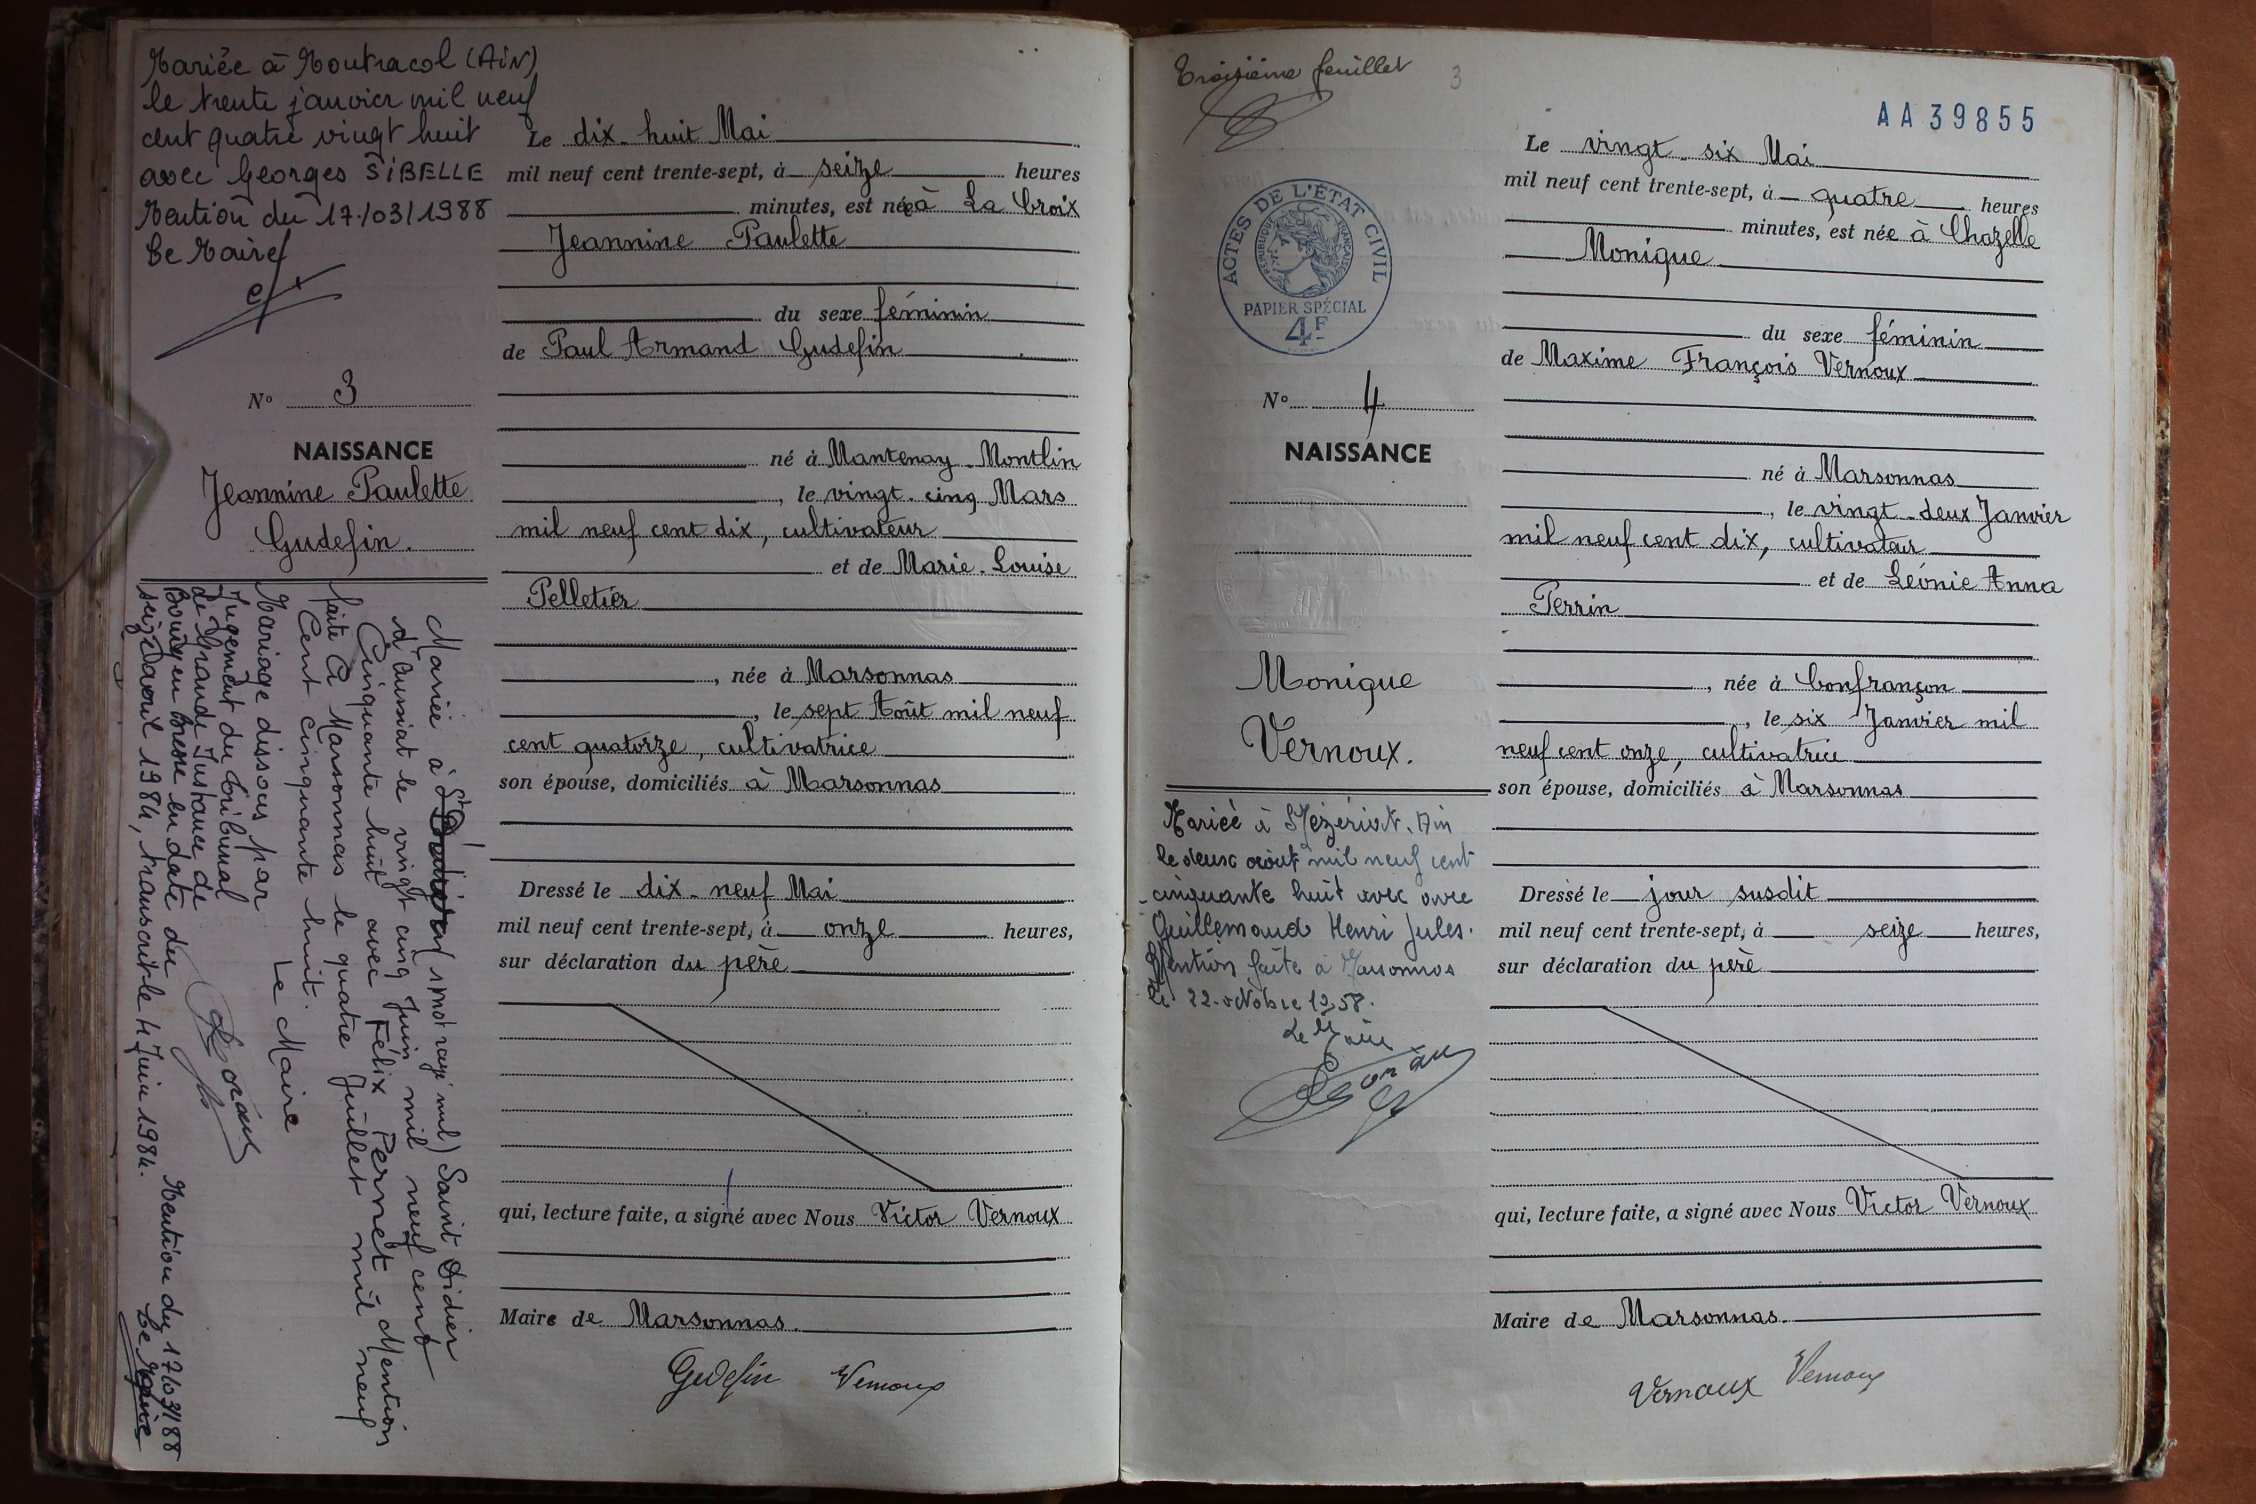 Mariée à Montracol (AiN)
le trente janvier mil neuf
cent quatre vingt huit
avec Georges SiBELLE
Mention du 17/03/1988
Le Maire
N° 3
NAISSANCE
Jeannine Paulette
Gudefin.
Mariée à St Didier (1 mot rayé nul) Saint Didier
d'Aussiat le vingt cinq Juin mil neuf cent
Cinquante huit avec Félix Pernet Mention
faite à Marsonnas le quatre Juillet mil neuf
Cent cinquante huit.
Le Maire
Mariage dissous par
Jugement du Tribunal
de Grande Instance de
Bourg en Bresse en date du
seize avril 1984, transcrit le 4 Juin 1984.
Mention du 17/03/88
Le Maire
Le dix-huit Mai
mil neuf cent trente-sept, à seize heures
minutes, est née à La Croix
Jeannine Paulette
du sexe féminin
de Paul Armand Gudefin
né à Mantenay-Montlin
, le vingt-cinq Mars
mil neuf cent dix, cultivateur
et de Marie-Louise
Pelletier
, née à Marsonnas
, le sept Août mil neuf
cent quatorze, cultivatrice
son épouse, domiciliés à Marsonnas
Dressé le dix-neuf Mai
mil neuf cent trente-sept, à onze heures,
sur déclaration du père
qui, lecture faite, a signé avec Nous Victor Vernoux
Maire de Marsonnas.
Gudefin Vernoux
Troisième feuillet 3
AA39855
ACTES DE L'ÉTAT CIVIL
RÉPUBLIQUE FRANÇAISE
PAPIER SPÉCIAL
4F
N° 4
NAISSANCE
Monique
Vernoux.
Mariée à Mézériat. Ain
le deux août mil neuf cent
cinquante huit avec avec
Guillemaud Henri Jules.
Mention faite à Marsonnas
le 22 octobre 1958.
Le Maire
Le vingt-six Mai
mil neuf cent trente-sept, à quatre heures
minutes, est née à Chazelle
Monique
du sexe féminin
de Maxime François Vernoux
né à Marsonnas
, le vingt-deux Janvier
mil neuf cent dix, cultivateur
et de Léonie Anna
Perrin
, née à Confrançon
, le six Janvier mil
neuf cent onze, cultivatrice
son épouse, domiciliés à Marsonnas
Dressé le jour susdit
mil neuf cent trente-sept, à seize heures,
sur déclaration du père
qui, lecture faite, a signé avec Nous Victor Vernoux
Maire de Marsonnas.
Vernoux Vernoux